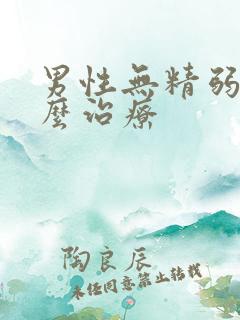 男性無精弱
麼治療
陶良辰
未經同意禁止轉載